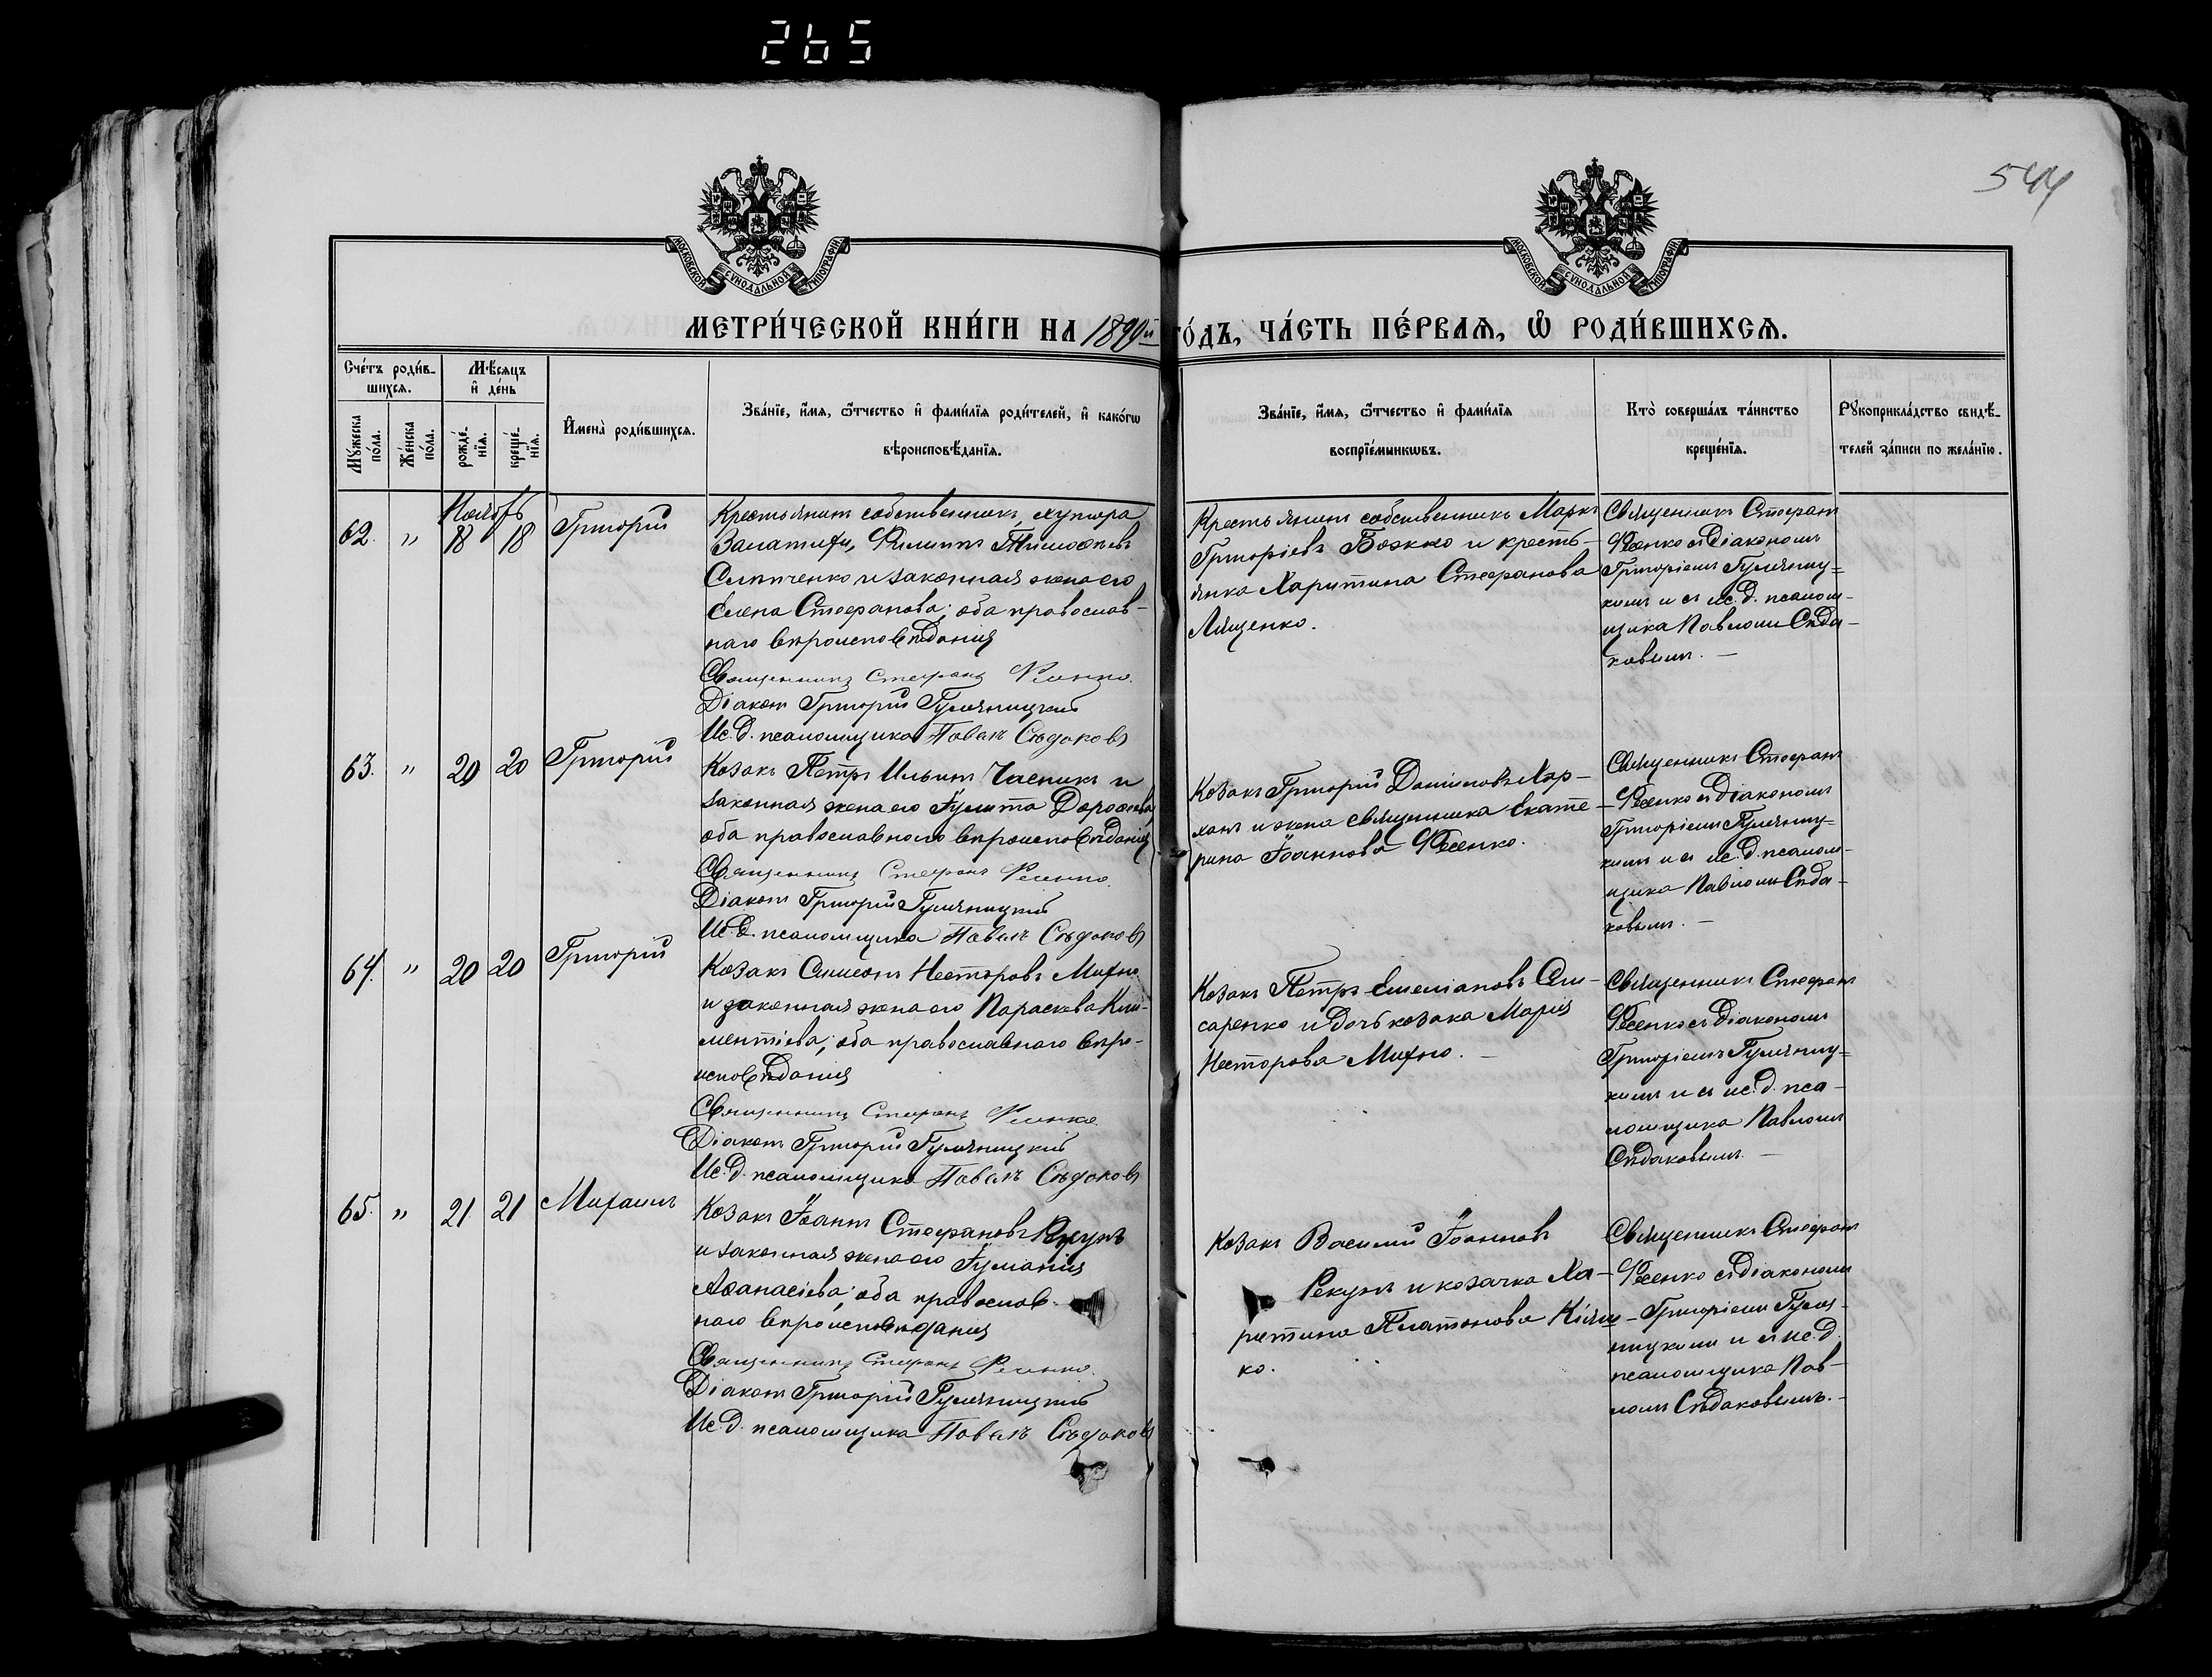 265
544
МОСКОВСКОЙ СѴНОДАЛЬНОЙ ТИПОГРАФІИ
МОСКОВСКОЙ СѴНОДАЛЬНОЙ ТИПОГРАФІИ
МЕТРИ́ЧЕСКОЙ КНИ́ГИ НА 1890й ГО́ДЪ, ЧА́СТЬ ПЕ́РВАѦ, Ѡ҆ РОДИ́ВШИХСѦ.
Сче́тъ роди́в-
шихсѧ.
Мꙋ́жеска по́ла.
Же́нска по́ла.
Мѣ́сѧцъ
и҆ де́нь
рожде́-
нїѧ.
креще́-
нїѧ.
И҆мена̀ роди́вшихсѧ.
Зва́нїе, и҆́мѧ, ѻ҆́тчество и҆ фами́лїѧ роди́телей, и҆ како́гѡ
вѣроисповѣ́данїѧ.
Зва́нїе, и҆́мѧ, ѻ҆́тчество и҆ фами́лїѧ
воспрїе́мникѡвъ.
Кто̀ соверша́лъ та́инство
креще́нїѧ.
Рꙋкоприкла́дство свидѣ́-
телей за́писи по жела́нїю.
Ноябрь
62. " 18 18 Григорій
Крестьянинъ собственникъ, хутора
Филиппъ Тимоѳеевъ
и законная жена его
Елена Стефанова; оба православ-
наго вѣроисповѣданія
Священникъ Стефанъ Фесенко.
Діаконъ Григорій Гуляницкій
Ис. д. псаломщика Павелъ Сѣдаковъ
Крестьянинъ собственникъ Маркъ
Григоріевъ Божко и кресть-
янка Харитина Стефанова
Лященко.
Священникъ Стефанъ
Фесенко съ діакономъ
Григоріемъ Гуляниц=
кимъ и съ ис. д. псалом-
щика Павломъ Сѣда-
ковымъ. —
63. " 20 20 Григорій
Козакъ Петръ Ильинъ Часникъ и
законная жена его Іулитта Дороѳеева,
оба православнаго вѣроисповѣданія
Священникъ Стефанъ Фесенко.
Діаконъ Григорій Гуляницкій
Ис. д. псаломщика Павелъ Сѣдаковъ
Козакъ Григорій Даніиловъ Хар-
ханъ и жена священника Екате-
рина Іоаннова Фесенко.
Священникъ Стефанъ
Фесенко съ діакономъ
Григоріемъ Гуляниц-
кимъ и съ ис. д. псалом-
щика Павломъ Сѣда-
ковымъ. —
64. " 20 20 Григорій
Козакъ Симеонъ Несторовъ Михно
и законная жена его Параскева Кли-
ментіева; оба православнаго вѣро-
исповѣданія
Священникъ Стефанъ Фесенко
Діаконъ Григорій Гуляницкій
Ис. д. псаломщика Павелъ Сѣдаковъ
Козакъ Петръ Емеліановъ Сли-
саренко и дочь козака Марія
Несторова Михно. —
Священникъ Стефанъ
Фесенко съ діакономъ
Григоріемъ Гуляниц=
кимъ и съ ис. д. пса-
ломщика Павломъ
Сѣдаковымъ. —
65. " 21 21 Михаилъ
Козакъ Іоаннъ Стефановъ Рекунъ
и законная жена его Іуліанія
Аѳанасіева; оба православ-
наго вѣроисповѣданія
Священникъ Стефанъ Фесенко.
Діаконъ Григорій Гуляницкій
Ис. д. псаломщика Павелъ Сѣдаковъ
Козакъ Василій Іоанновъ
Рекунъ и козачка Ха-
ритина Платонова
ко.
Священникъ Стефанъ
Фесенко съ діакономъ
Григоріемъ Гуля-
ницкимъ и съ ис. д.
псаломщика Пав-
ломъ Сѣдаковымъ. —